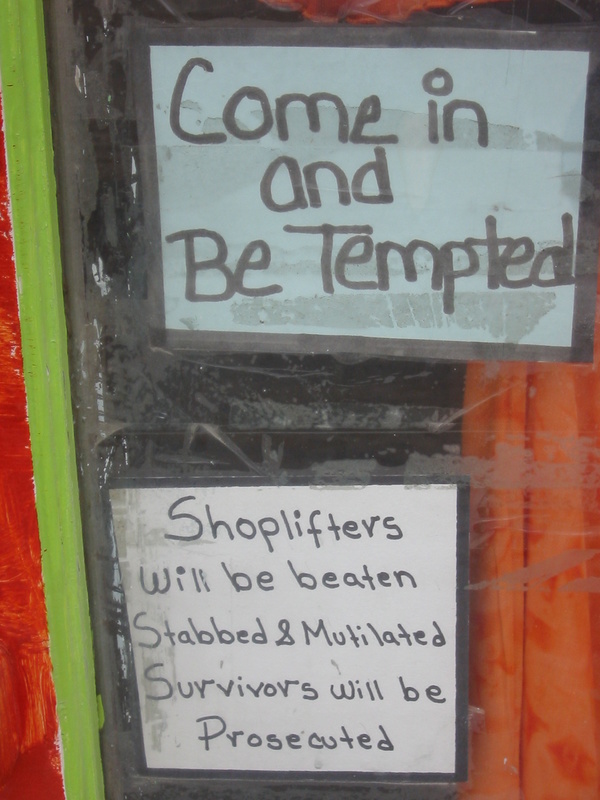 Come in
and
Be Tempted
Shoplifters
will be beaten
Stabbed & Mutilated
Survivors will be
Prosecuted